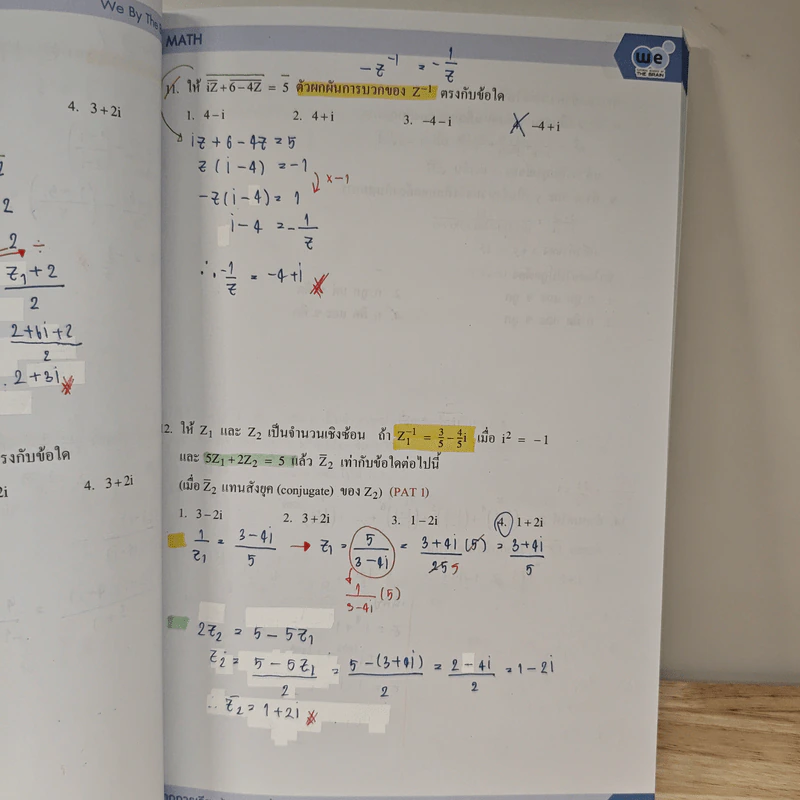 We By The
4. 3+2i
2
2 ÷
Z₁+2
2
2+6i+2
2
2+3i
รงกับข้อใด
2i
4. 3+2i
MATH
we
THE BRAIN
-z⁻¹ = -1/z
11. ให้ \overline{iZ}+\overline{6-4Z} = \overline{5} ตัวผกผันการบวกของ Z⁻¹ ตรงกับข้อใด
1. 4-i 2. 4+i 3. -4-i 4. -4+i
iz+6-4z=5
z(i-4) = -1
×-1
-z(i-4) = 1
i-4 = -1/z
∴ -1/z = -4+i
12. ให้ Z₁ และ Z₂ เป็นจำนวนเชิงซ้อน ถ้า Z₁⁻¹ = 3/5-4/5i เมื่อ i² = -1
และ 5Z₁+2Z₂ = 5 แล้ว Z̄₂ เท่ากับข้อใดต่อไปนี้
(เมื่อ Z̄₂ แทนสังยุค (conjugate) ของ Z₂) (PAT 1)
1. 3-2i 2. 3+2i 3. 1-2i 4. 1+2i
1/z₁ = (3-4i)/5 → z₁ = 5/(3-4i) = (3+4i)/25 (5) = (3+4i)/5
5
1/(3-4i) (5)
2z₂ = 5 - 5z₁
z₂ = (5-5z₁)/2 = (5-(3+4i))/2 = (2-4i)/2 = 1-2i
∴ z̄₂ = 1+2i